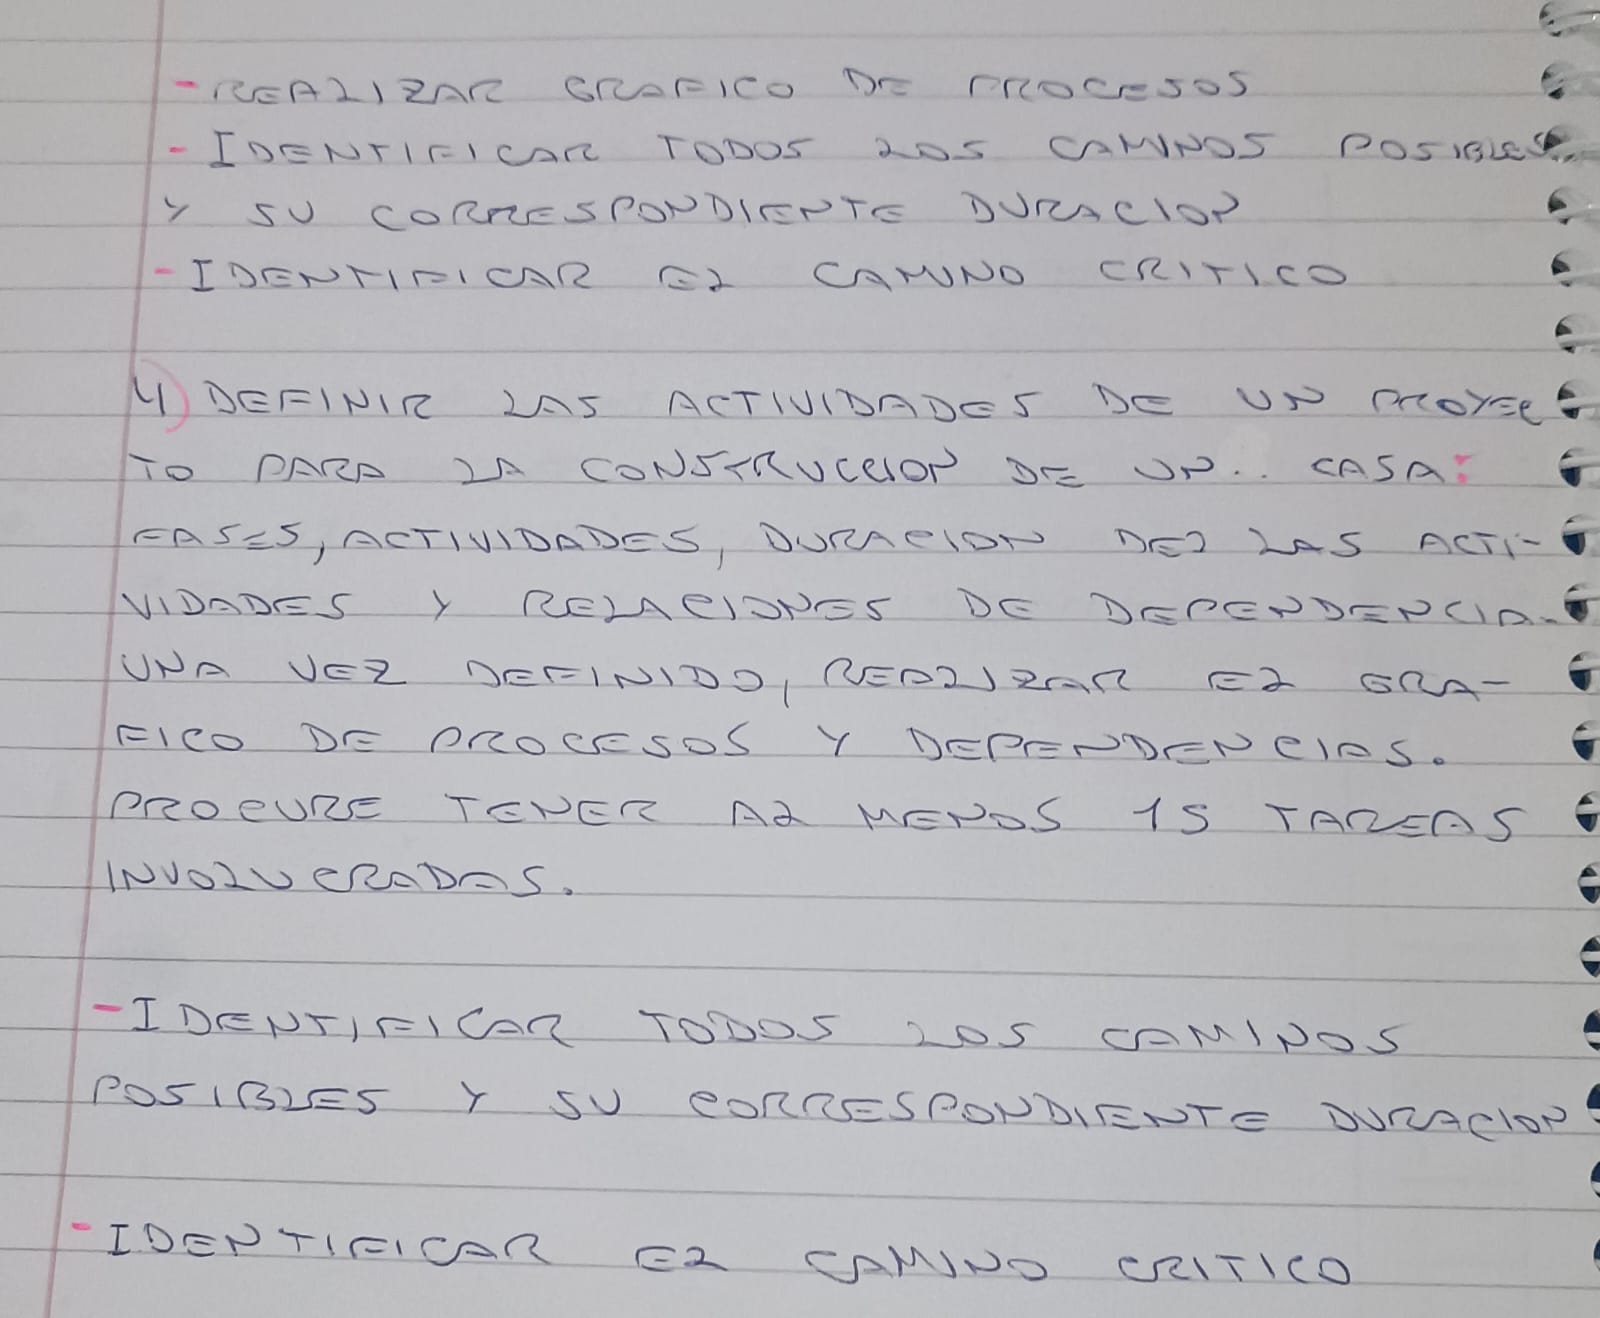 - REALIZAR GRAFICO DE PROCESOS
- IDENTIFICAR TODOS LOS CAMINOS POSIBLES
Y SU CORRESPONDIENTE DURACION
- IDENTIFICAR EL CAMINO CRITICO
4) DEFINIR LAS ACTIVIDADES DE UN PROYEC
TO PARA LA CONSTRUCCION DE UN.. CASA:
FASES, ACTIVIDADES, DURACION DEL LAS ACTI-
VIDADES Y RELACIONES DE DEPENDENCIA.
UNA VEZ DEFINIDO, REALIZAR EL GRA-
FICO DE PROCESOS Y DEPENDENCIAS.
PROCURE TENER AL MENOS 15 TAREAS
INVOLUCRADAS.
- IDENTIFICAR TODOS LOS CAMINOS
POSIBLES Y SU CORRESPONDIENTE DURACION
- IDENTIFICAR EL CAMINO CRITICO